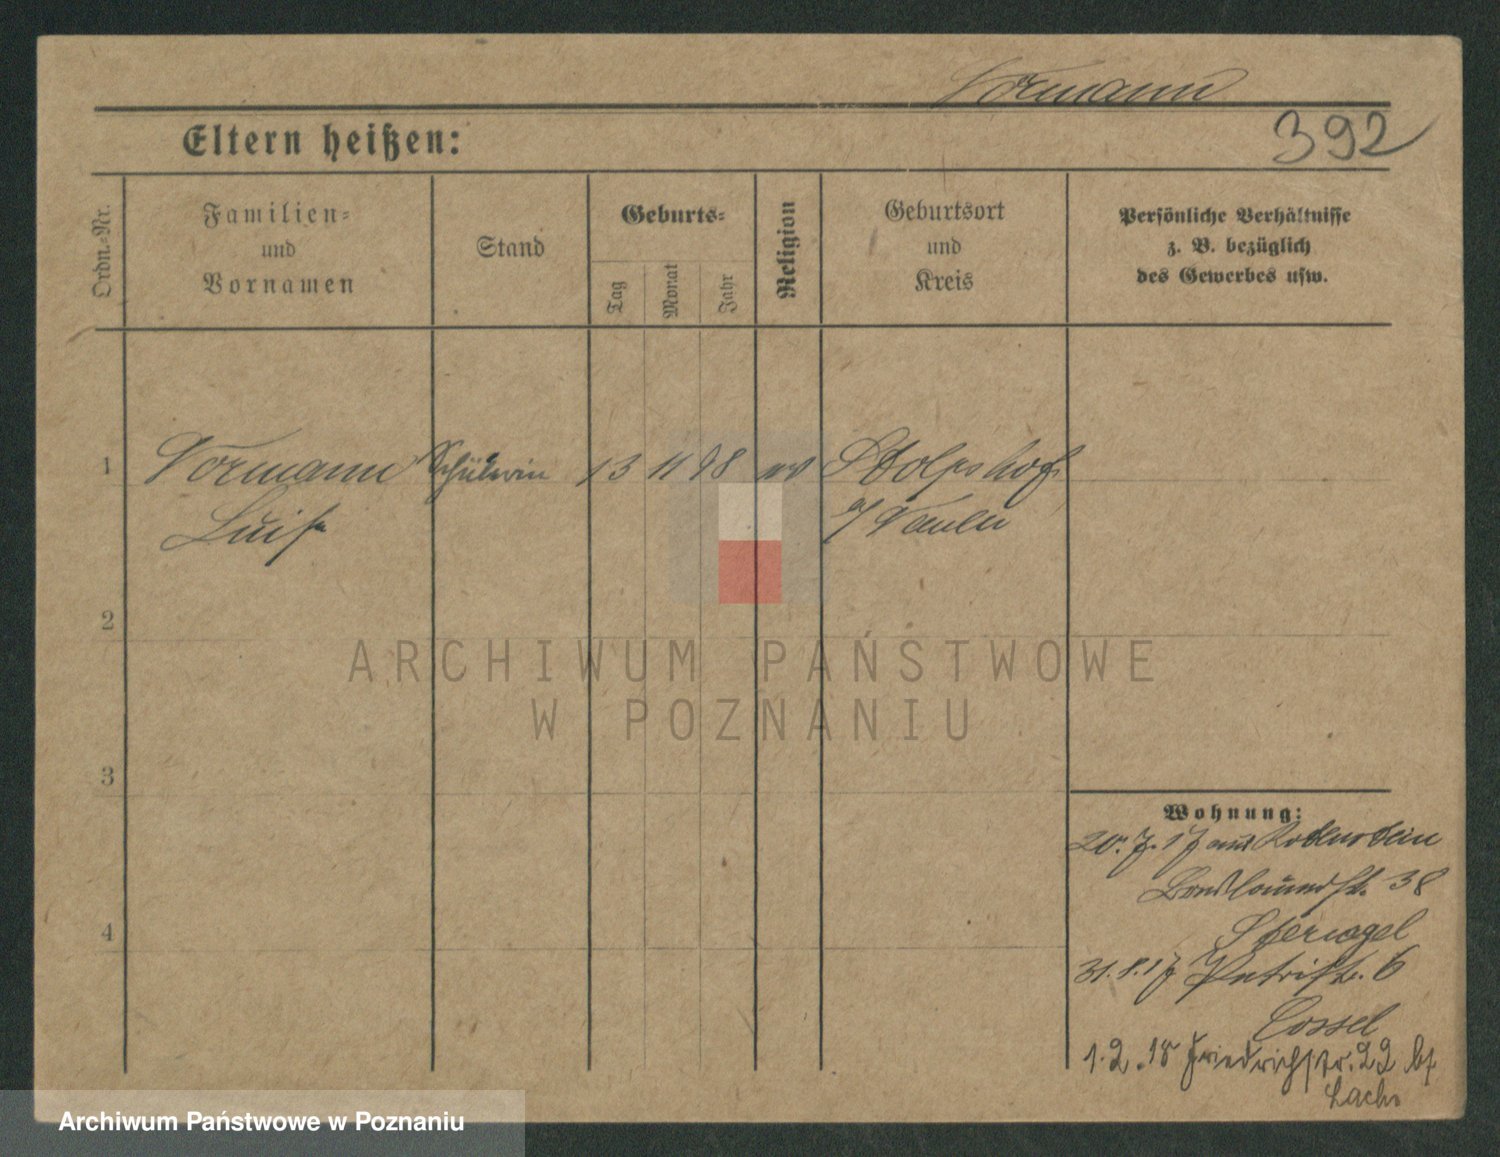 Vormann
392
Eltern heißen:
Ordn.-Nr.
Familien-
und
Vornamen
Stand
Geburts-
Tag
Monat
Jahr
Religion
Geburtsort
und
Kreis
Persönliche Verhältnisse
z. B. bezüglich
des Gewerbes usw.
1
Vormann
Luise
Schülerin
13 11 98
Stolpshof
2
ARCHIWUM PAŃSTWOWE
W POZNANIU
3
4
Wohnung:
20.7.17 aus
38
31.8.17 Petristr. 6
Cossel
1.2.18 Friedrichstr. 22 bei
Archiwum Państwowe w Poznaniu